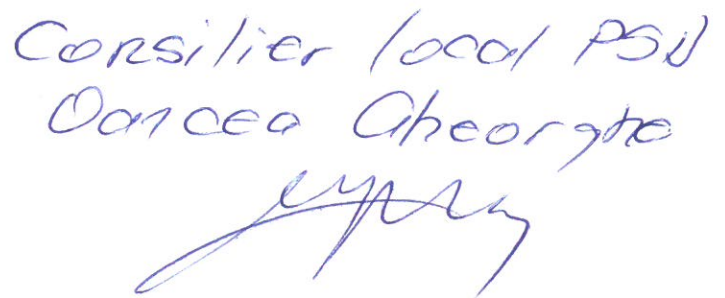 Consilier local PSD
Oancea Gheorghe